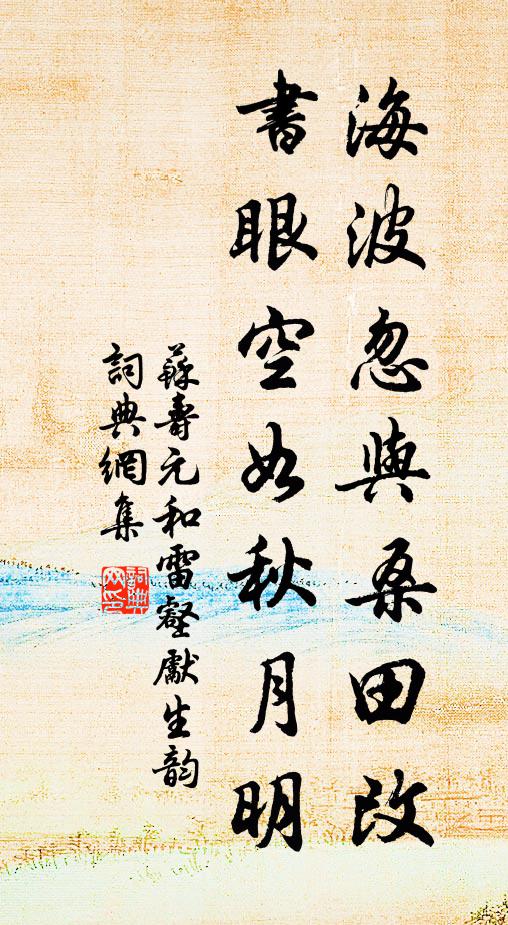 海波忽與桑田改
書眼空如秋月明
蘇壽元和雷壑獻生韵
詞典網集
詞典网印